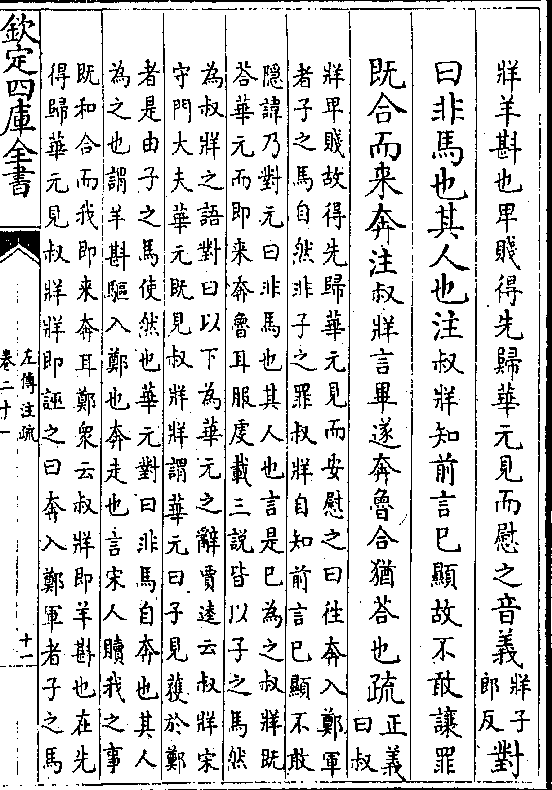 牂羊斟也卑賤得先歸華元見而慰之音義牂子郎反對
曰非馬也其人也注叔牂知前言已顯故不敢讓罪
既合而来奔注叔牂言畢遂奔魯合猶荅也疏正義曰叔
牂卑賤故得先歸華元見而安慰之曰往奔入鄭軍
者子之馬自然非子之罪叔牂自知前言已顯不敢
隱諱乃對元曰非馬也其人也言是已為之叔牂既
荅華元而即来奔魯耳服虔載三説皆以子之馬然
為叔牂之語對曰以下為華元之辭賈逵云叔牂宋
守門大夫華元既見叔牂牂謂華元曰子見獲於鄭
者是由子之馬使然也華元對曰非馬自奔也其人
為之也謂羊斟驅入鄭也奔走也言宋人贖我之事
既和合而我即来奔耳鄭衆云叔牂即羊斟也在先
得歸華元見叔牂牂即誣之曰奔入鄭軍者子之馬
欽定四庫全書
左傳注疏
卷二十一
十一